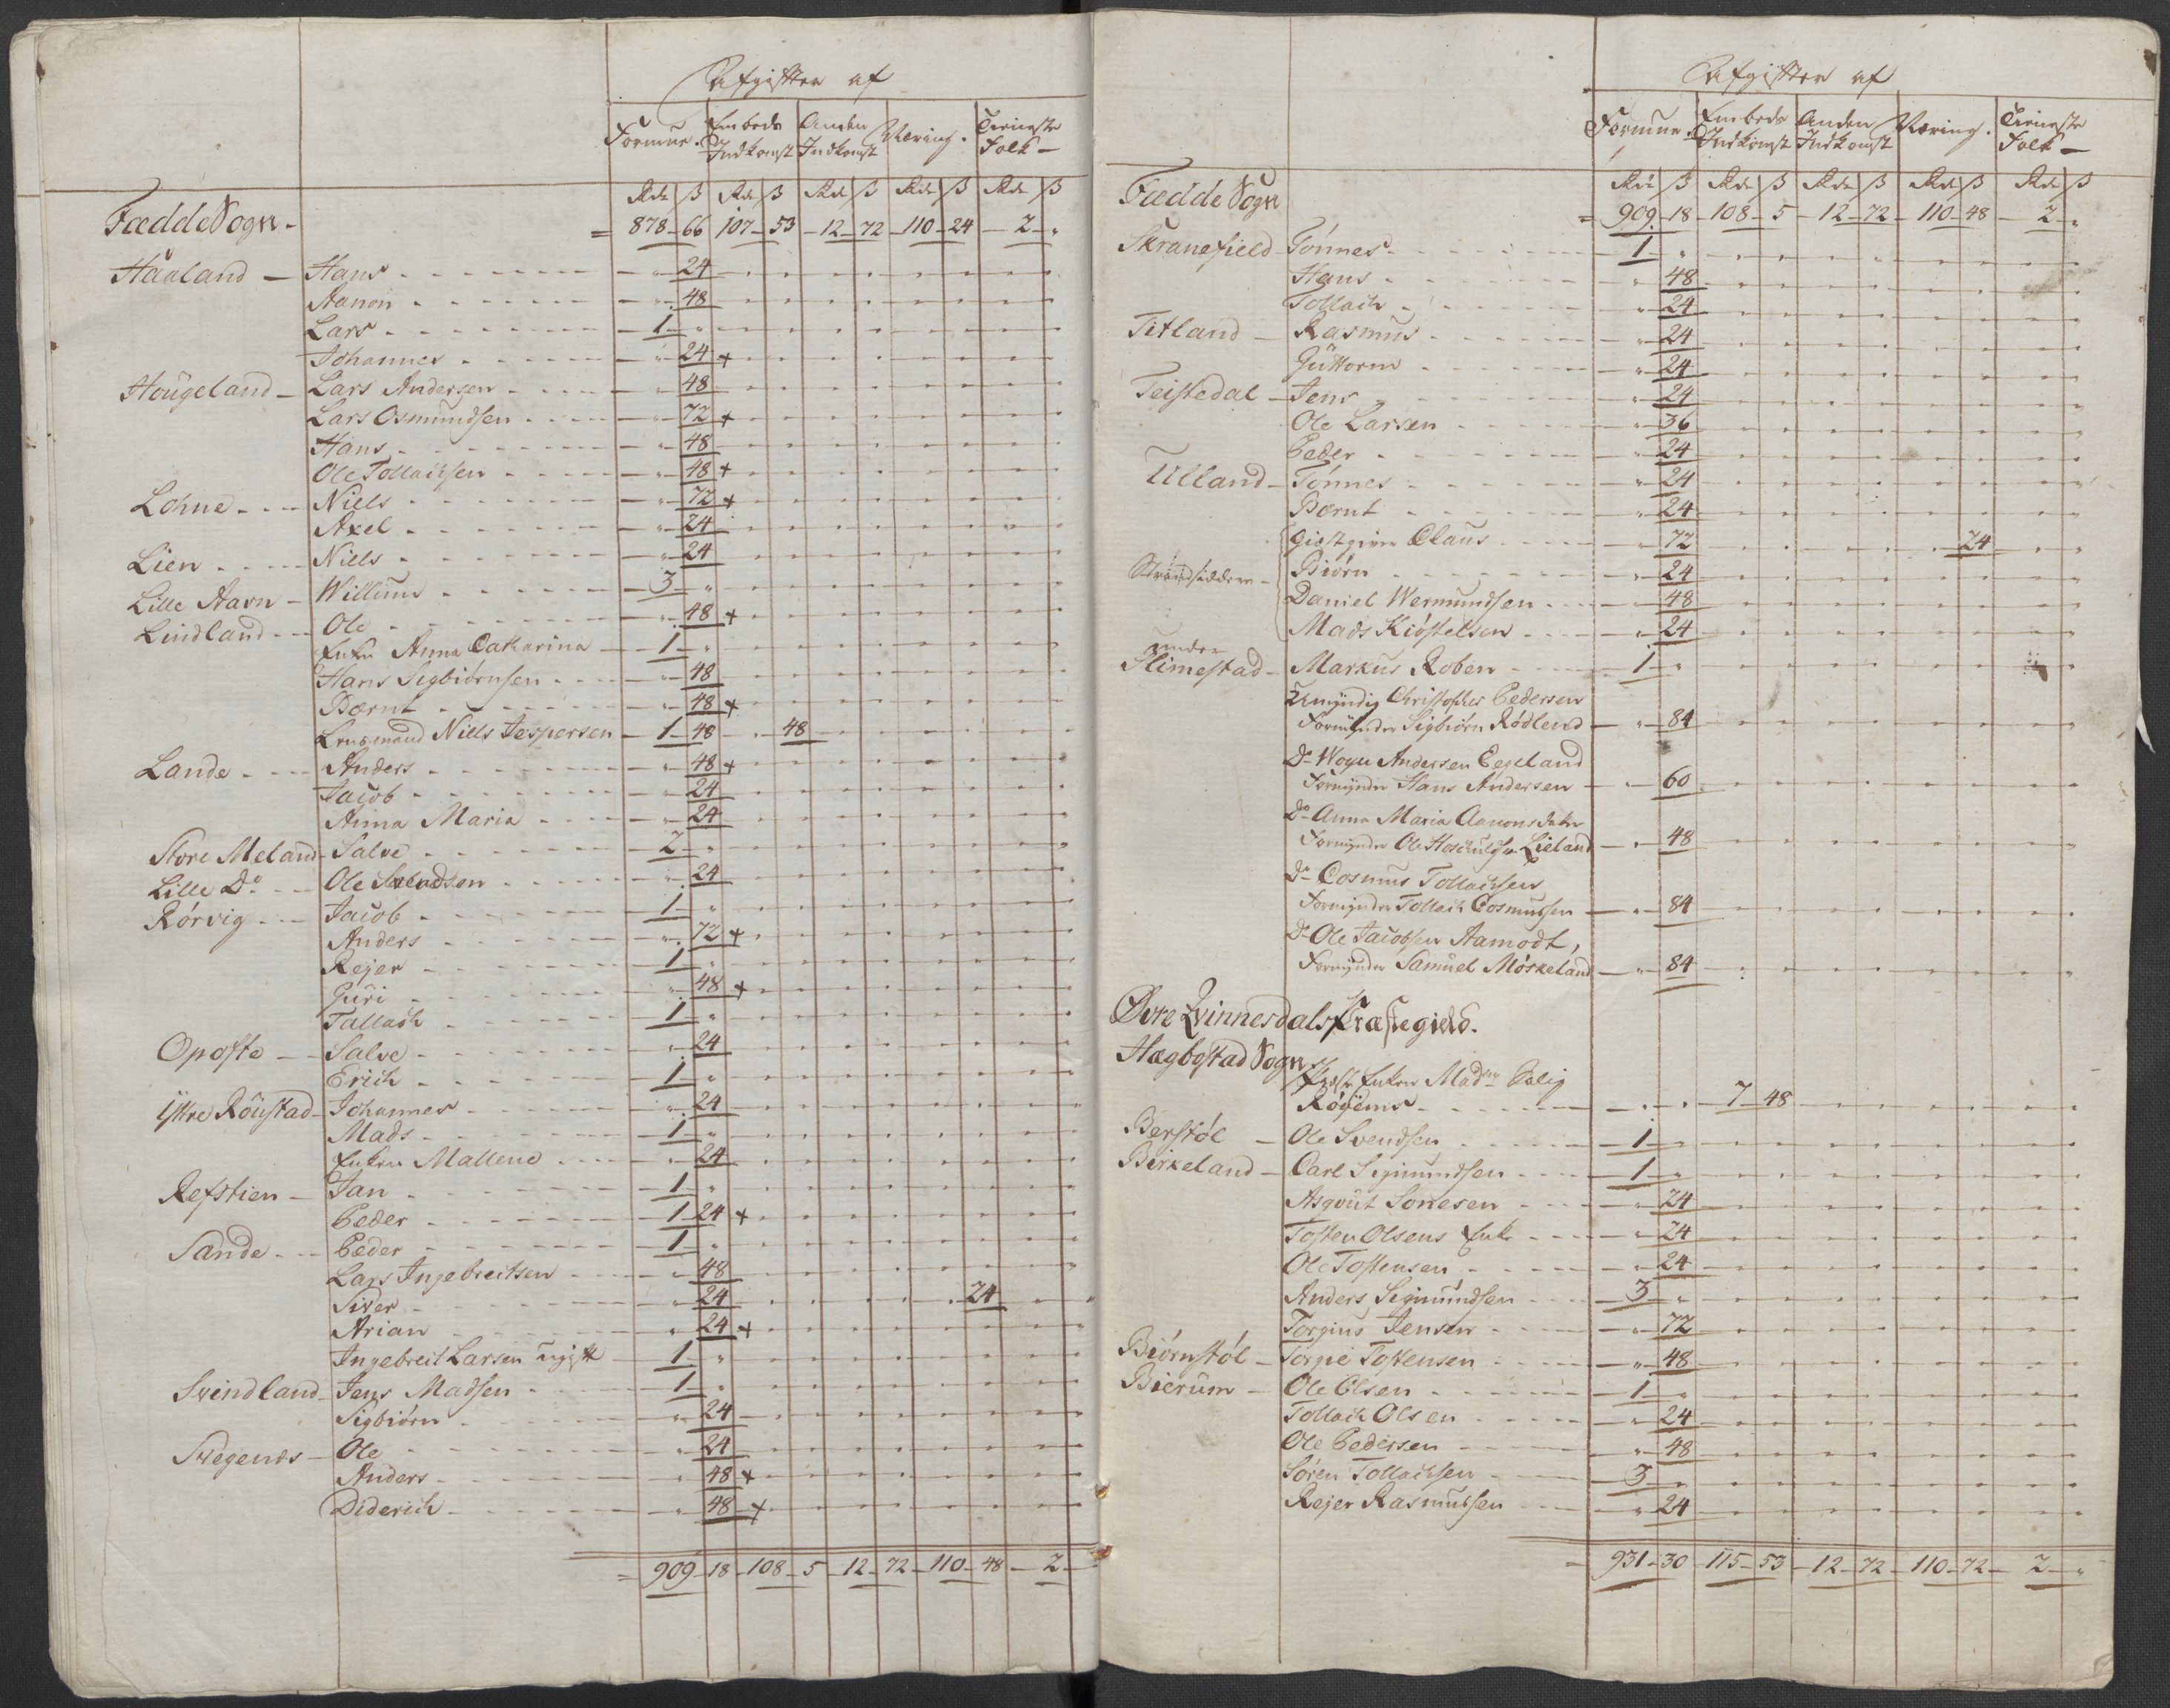 Afgifter af
Formue. Embeds Indkomst Anden Indkomst Næring. Tieneste Folk
Rdr ß Rdr ß Rdr ß Rdr ß Rdr ß
Fædde Sogn - = 878 - 66 107 - 53 - 12 - 72 - 110 - 24 - 2 - "
Haaland - Hans - " 24
Aanon - " 48
Lars - 1 - "
Johannes - " 24 +
Hougeland - Lars Andersen - " 48
Lars Osmundsen - " 72 +
Hans - " 48
Ole Tollachsen - " 48 +
Lohne - Niels - " 72 +
Axel - " 24
Lien - Niels - " 24
Lille Aavn - Willum - 3 - "
Lindland - Ole - " 48 +
Enken Anna Catharina - 1 - "
Hans Sigbiørnsen - " 48
Bernt - " 48 +
Lensmand Niels Jespersen - 1 - 48 - " 48
Lande - Anders - " 48 +
Jacob - " 24
Anna Maria - " 24
Store Meland - Salve - 2 - "
Lille Do - Ole Salvesen - " 24
Rørvig - Jacob - 1 - "
Anders - " 72 +
Rejer - 1 - "
Guri - " 48 +
Tallach - 1 - "
Opofte - Salve - " 24
Erich - 1 - "
Ytre Røustad - Johannes - " 24
Mads - 1 - "
Enken Mallene - " 24
Refstien - Jan - 1 - "
Peder - 1 - 24 +
Sande - Peder - 1 - "
Lars Ingebreitsen - " 48
Siver - " 24 - " 24
Arian - " 24 +
Ingebreit Larsen ugift - 1 - "
Svindland - Jens Madsen - 1 - "
Sigbiørn - " 24
Svegenes - Ole - " 24
Anders - " 48 +
Diderich - " 48 +
= 909 - 18 - 108 - 5 - 12 - 72 - 110 - 48 - 2 -
Afgifter af
Formue. Embeds Indkomst Anden Indkomst Næring. Tieneste Folk
Rdr ß Rdr ß Rdr ß Rdr ß Rdr ß
Fædde Sogn = 909 - 18 - 108 - 5 - 12 - 72 - 110 - 48 - 2 - "
Skranefield - Tønnes - 1 - "
Hans - " 48
Tollach - " 24
Titland - Rasmus - " 24
Guttorm - " 24
Teistedal - Jens - " 24
Ole Larsen - " 36
Peder - " 24
Ulland - Tønnes - " 24
Bernt - " 24
Giestgiver Claus - " 72 - " 24
Strandsidderne - Biørn - " 24
Daniel Wermundsen - " 48
Mads Kiøstelsen - " 24
under
Slimestad - Markus Roben - 1 - "
Umyndig Christopher Pedersen
Formynder Sigbiørn Rødland - " 84
Do Wogu Andersen Eegeland
Formynder Hans Andersen - " 60
Do Anna Maria Aanonsdatter
Formynder Ole Hoschuldsen Lieland - " 48
Do Cosmus Tollachsen
Formynder Tollach Cosmussen - " 84
Do Ole Jacobsen Aamodt,
Formynder Samuel Møskeland - " 84
Øvre Qvinnesdals Præstegield.
Hægbostad Sogn
Præste Enken Madme Salig
Røyems - " " 7 - 48
Berstøl - Ole Svendsen - 1 - "
Birkeland - Carl Sigmundsen - 1 - "
Asgout Sonesen - " 24
Tosten Olsens Enke - " 24
Ole Tostensen - " 24
Anders Sigmundsen - 3 - "
Torgius Jensen - " 72
Biørnstøl - Torgie Tostensen - " 48
Bierum - Ole Olsen - 1 - "
Tollach Olsen - " 24
Ole Pedersen - " 48
Søren Tollachsen - 3 - "
Rejer Rasmussen - " 24
= 931 - 30 - 115 - 53 - 12 - 72 - 110 - 72 - 2 - "